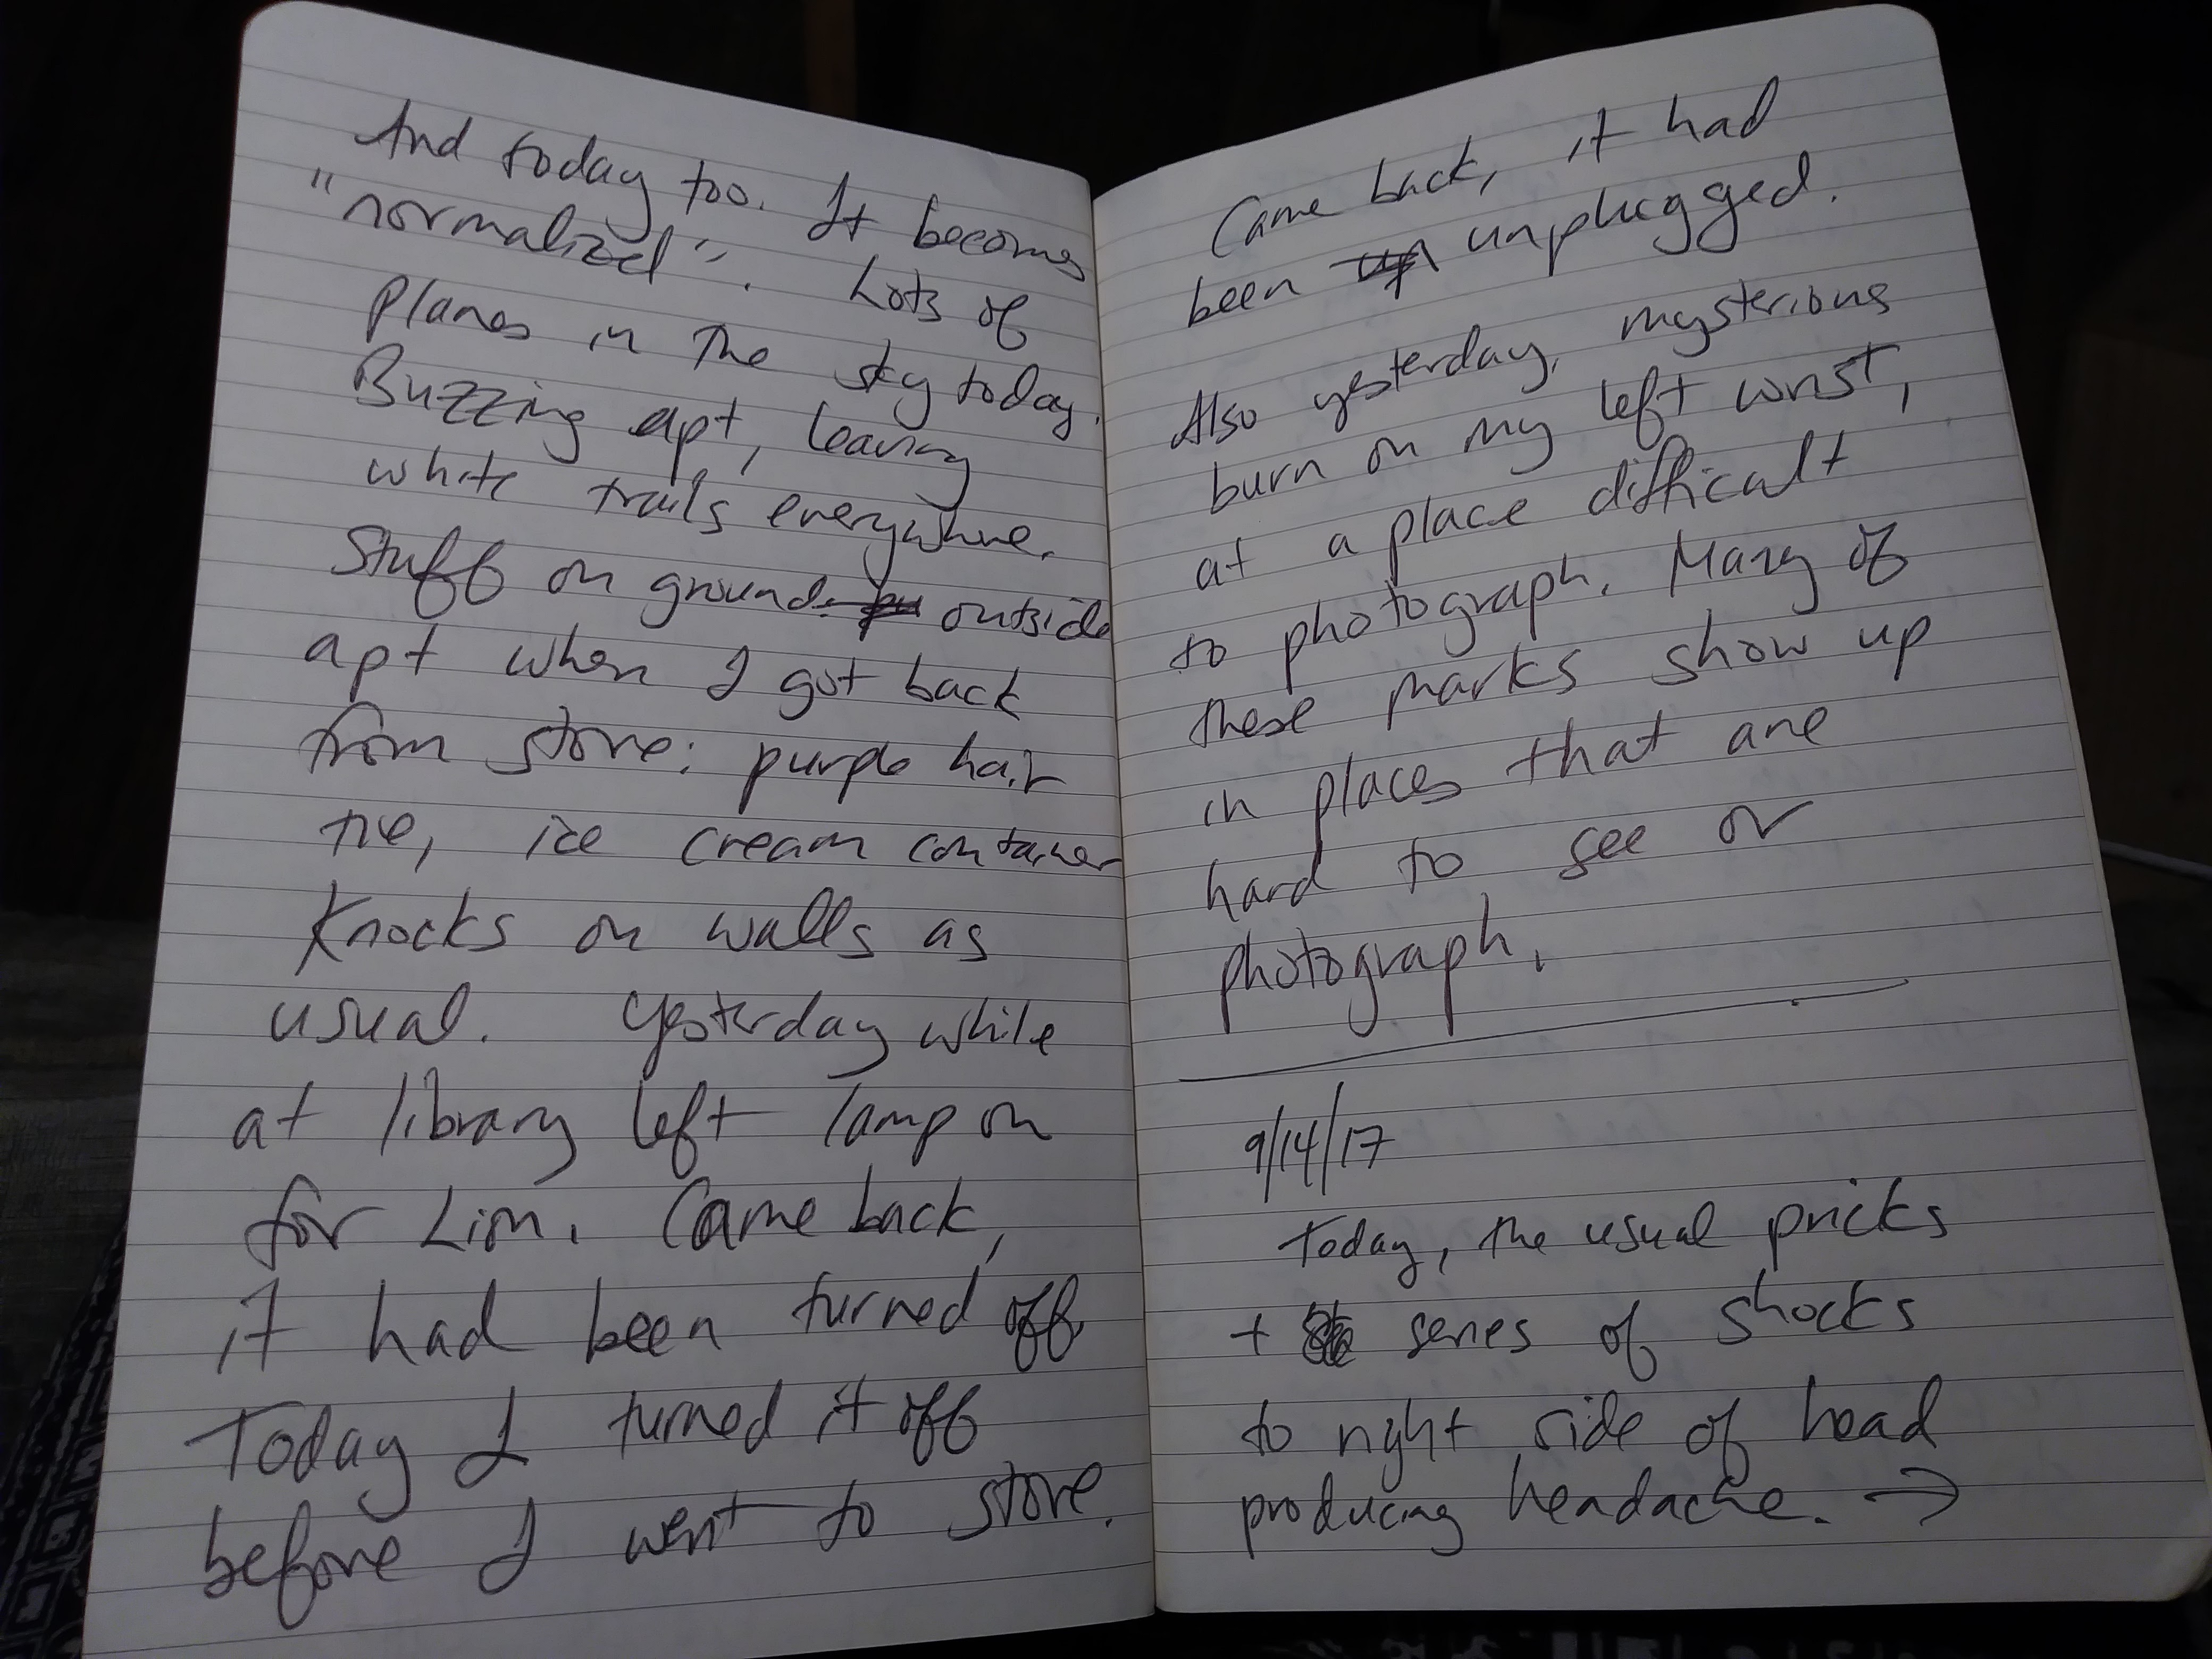 And today too. It becomes
"normalized". Lots of
planes in the sky today.
Buzzing apt, leaving
white trails everywhere.
Stuff on ground outside
apt when I got back
from store: purple hair
tie, ice cream container
Knocks on walls as
usual. Yesterday while
at library left lamp on
for Lion. Came back,
it had been turned off.
Today I turned it off
before I went to store.
Came back, it had
been unplugged.
Also yesterday, mysterious
burn on my left wrist,
at a place difficult
to photograph. Many of
these marks show up
in places that are
hard to see or
photograph.
9/14/17
Today, the usual pricks
+ series of shocks
to right side of head
producing headache. →